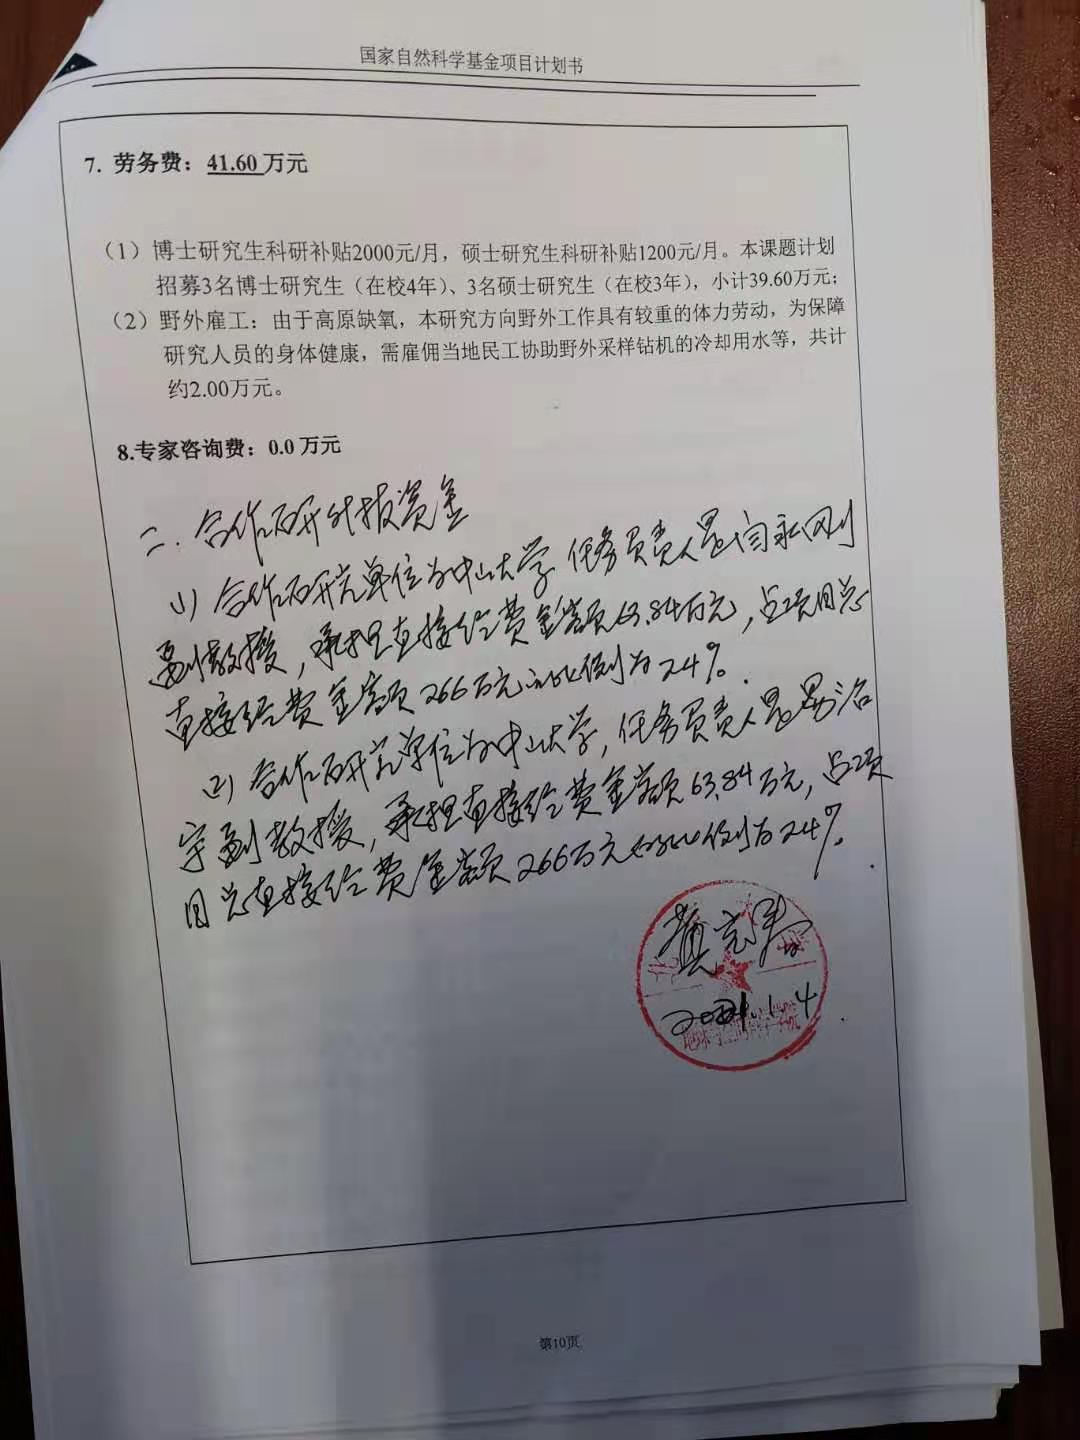 国家自然科学基金项目计划书
7. 劳务费：41.60 万元
（1）博士研究生科研补贴2000元/月，硕士研究生科研补贴1200元/月。本课题计划
招募3名博士研究生（在校4年）、3名硕士研究生（在校3年），小计39.60万元；
（2）野外雇工：由于高原缺氧，本研究方向野外工作具有较重的体力劳动，为保障
研究人员的身体健康，需雇佣当地民工协助野外采样钻机的冷却用水等，共计
约2.00万元。
8.专家咨询费：0.0 万元
二．合作研究外拨资金
1) 合作研究单位为中山大学 任务负责人是闫永刚
副教授，承担直接经费金额63.84万元，占项目总
直接经费金额266万元的比例为24%．
2) 合作研究单位为中山大学，任务负责人是易治
宇副教授，承担直接经费金额63.84万元，占项
目总直接经费金额266万元的比例为24%．
2021.1.4
第10页